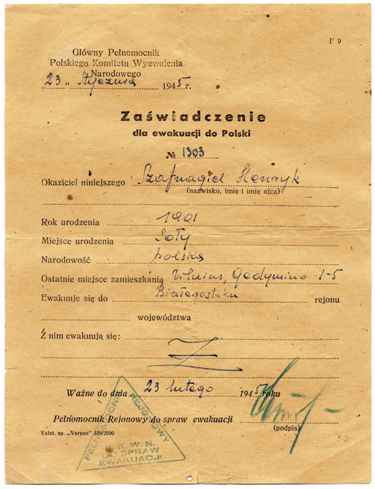 F 9
Główny Pełnomocnik
Polskiego Komitetu Wyzwolenia
Narodowego
23 „ Stycznia 1945 r.
Zaświadczenie
dla ewakuacji do Polski
№ 1303
Okaziciel niniejszego Szafnagiel Henryk
(nazwisko, imię i imię ojca)
Rok urodzenia 1901
Miejsce urodzenia Soły
Narodowość polska
Ostatnie miejsce zamieszkania Vilnius, Gedymino 1-5
Ewakuuje się do Białegostoku rejonu
województwa
Z nim ewakuują się:
Z
Ważne do dnia 23 lutego 1945 roku
Pełnomocnik Rejonowy do spraw ewakuacji
(podpis)
PEŁNOMOCNIK REJONOWY
P.K.W.N.
DO SPRAW
EWAKUACJI